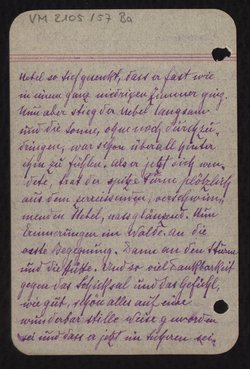 VM 2105/57 Ba
Nebel so tief gesenkt, dass er fast wie
in einem ganz niedrigen Zimmer ging.
Nun aber stieg der Nebel langsam
und die Sonne, ohne noch durchzu-
dringen, war schon überall hinter
ihm zu fühlen. Als er jetzt sich wen-
dete, trat der spitze Turm plötzlich
aus dem , verschwim-
menden Nebel, nassglänzend. Nun
Erinnerungen im Walde. An die
erste Begegnung. Dann an den Sturm
und die Hütte. Und so viel Dankbarkeit
gegen das Schicksal und das Gefühl,
wie gut, schön alles auf eine
wunderbar stille Weise geworden
sei und dass er jetzt im sicheren sei,